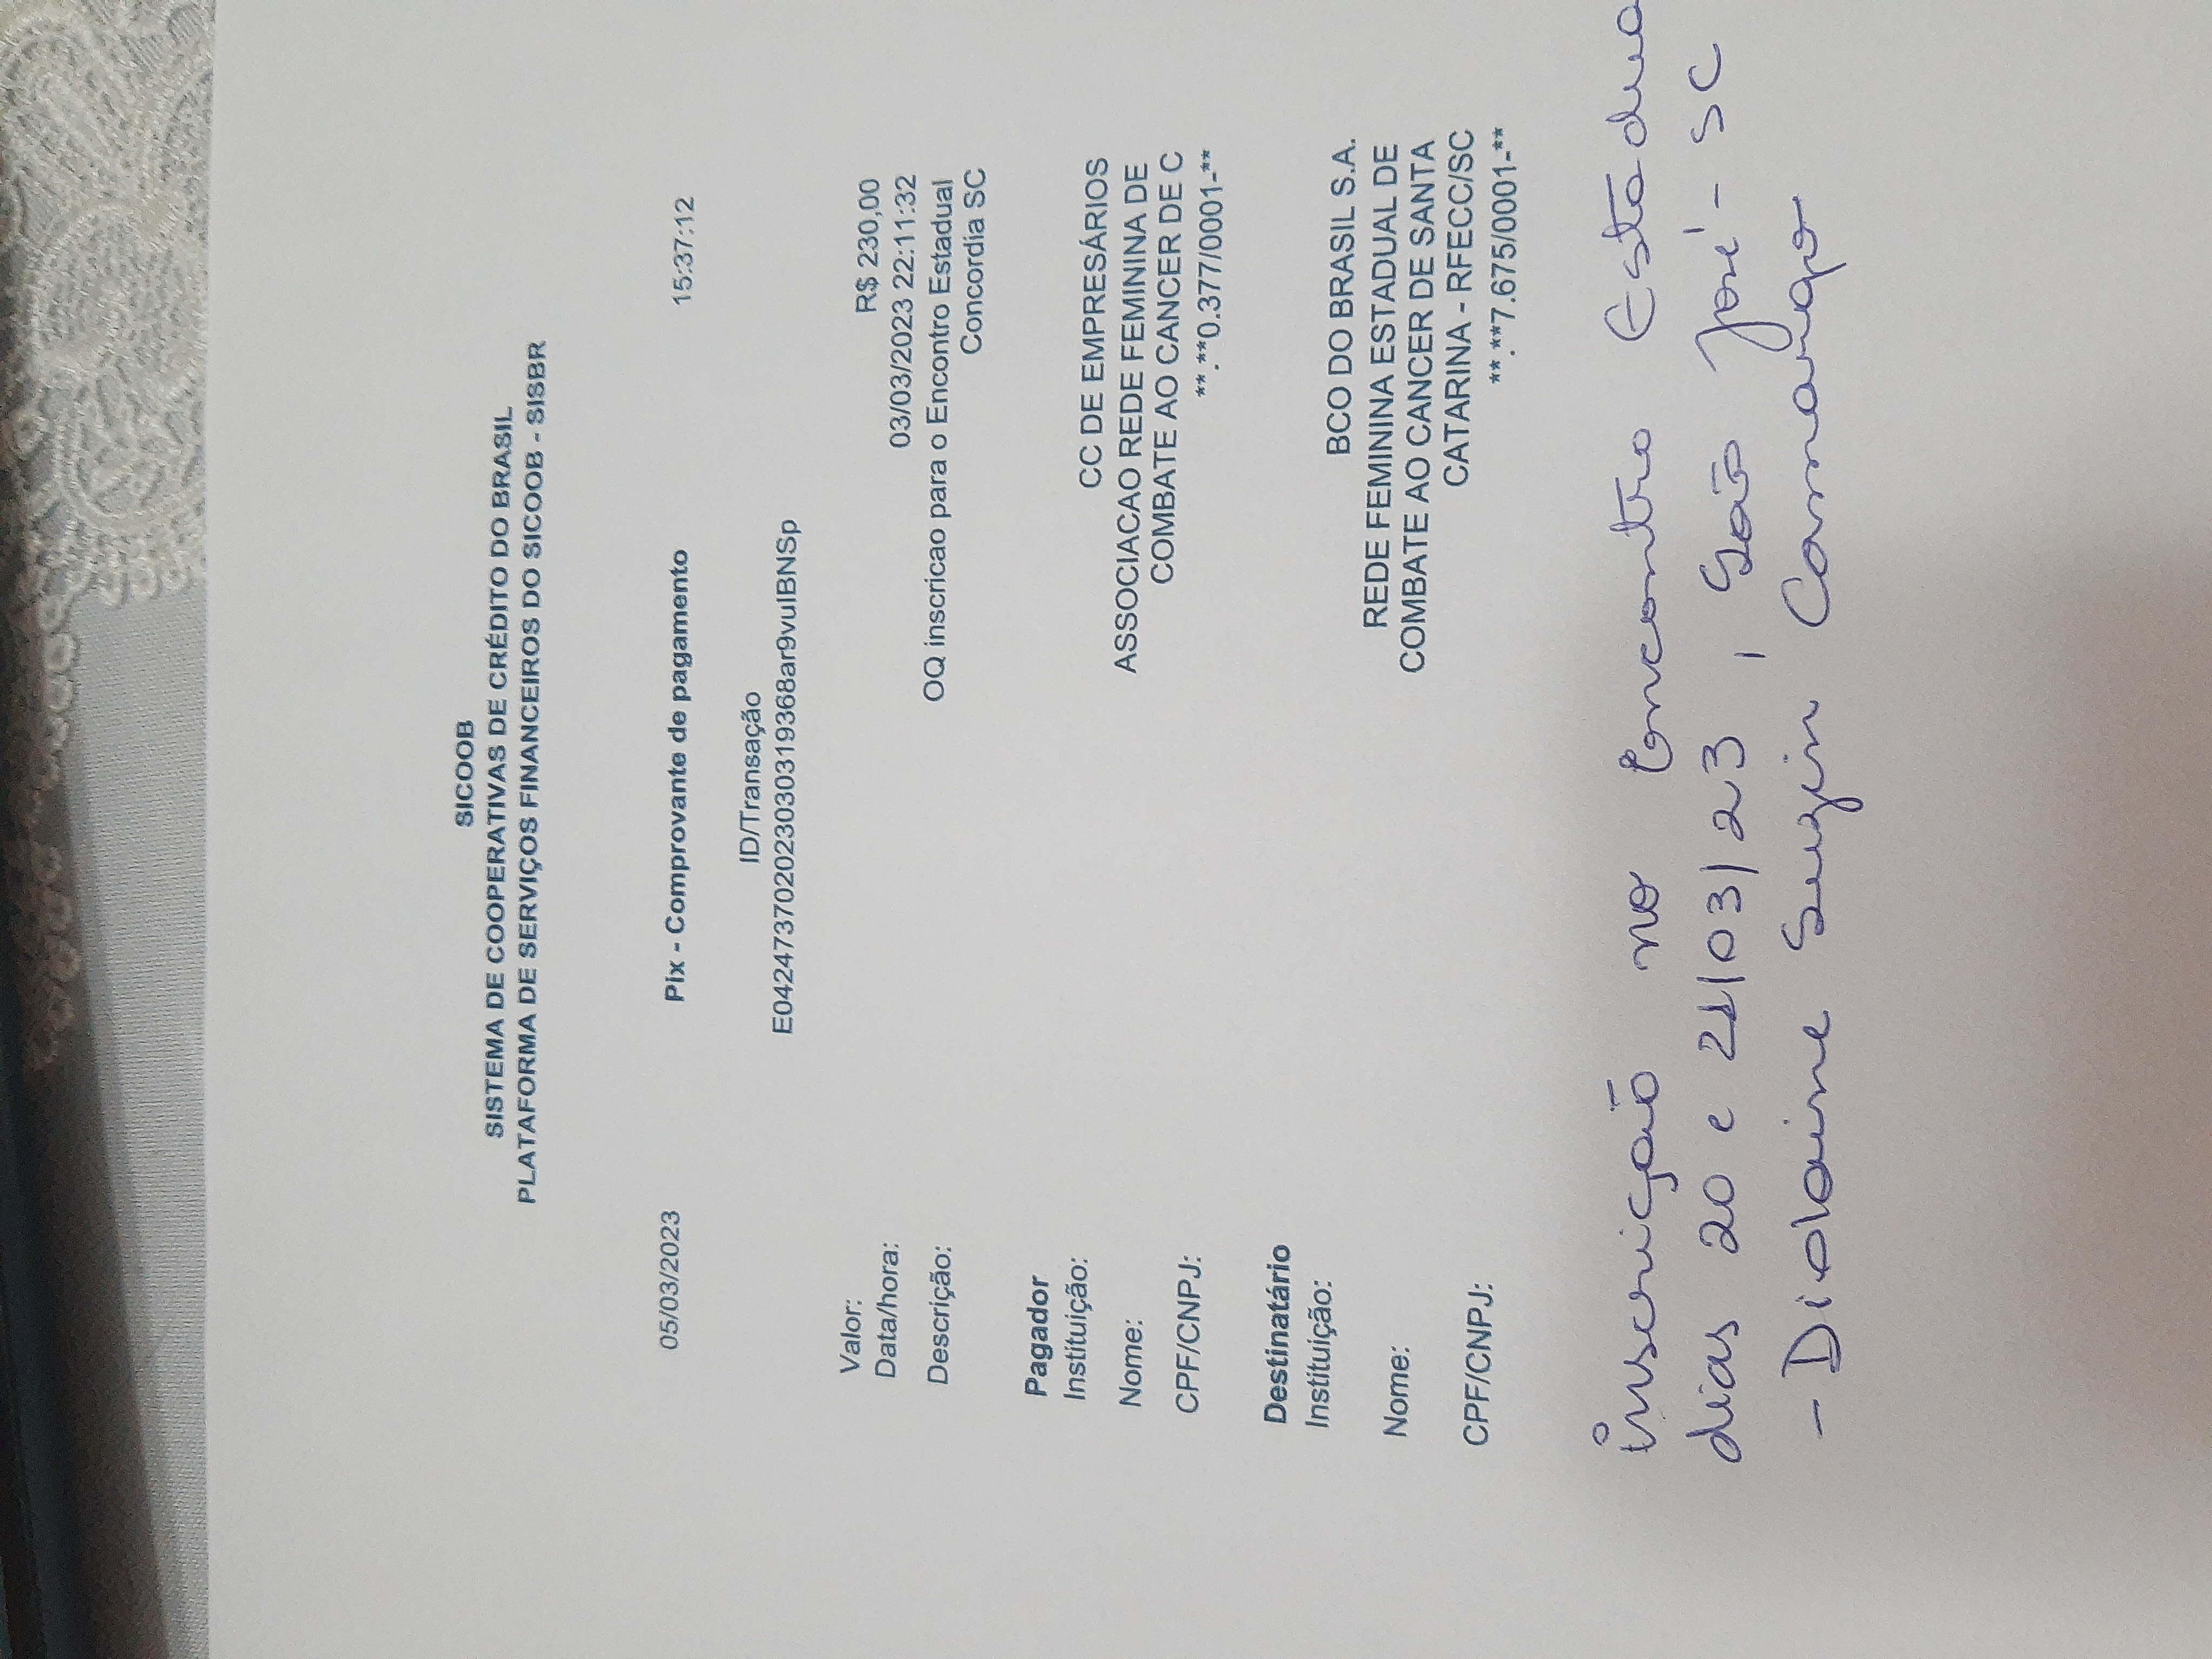 SICOOB
SISTEMA DE COOPERATIVAS DE CRÉDITO DO BRASIL
PLATAFORMA DE SERVIÇOS FINANCEIROS DO SICOOB - SISBR
05/03/2023 Pix - Comprovante de pagamento 15:37:12
ID/Transação
E042473702023030319368ar9vuIBNSp
Valor: R$ 230,00
Data/hora: 03/03/2023 22:11:32
Descrição: OQ inscricao para o Encontro Estadual
Concordia SC
Pagador
Instituição: CC DE EMPRESÁRIOS
Nome: ASSOCIACAO REDE FEMININA DE
COMBATE AO CANCER DE C
CPF/CNPJ: **.**0.377/0001-**
Destinatário
Instituição: BCO DO BRASIL S.A.
REDE FEMININA ESTADUAL DE
Nome: COMBATE AO CANCER DE SANTA
CATARINA - RFECC/SC
CPF/CNPJ: **.**7.675/0001-**
Inscrição no Encontro Estadua
dias 20 e 21/03/23, São José - SC
- Diolaine Camargo